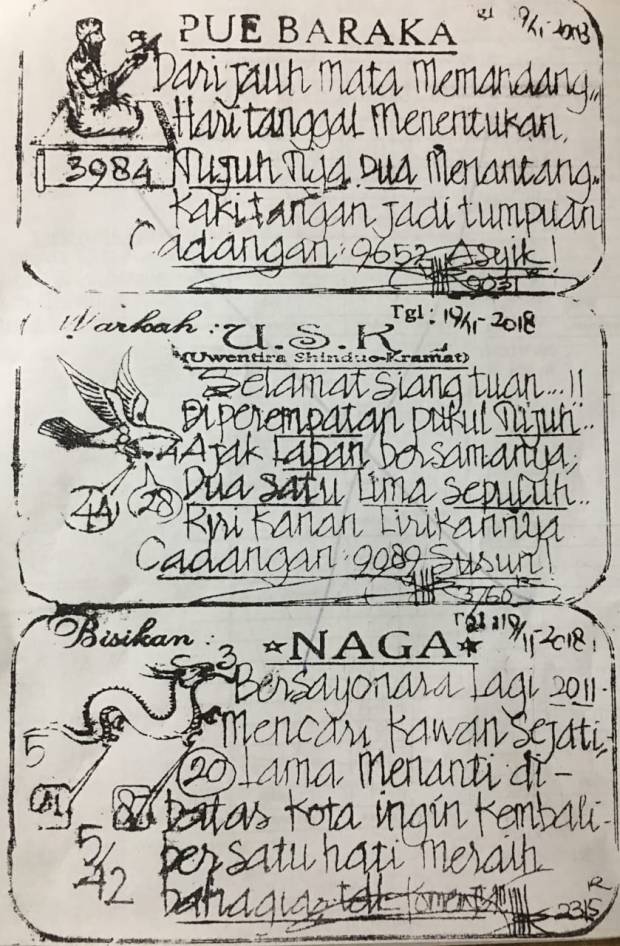 PUE BARAKA
Dari jauh mata memandang..
Hari tanggal Menentukan,
3984 Tujuh Nya Dua Menantang.
Kaki tangan jadi tumpuan
Cadangan: 9652 Asyik!
9031
Warkah: U.S.K Tgl: 19/11-2018
(Uwentira Shinduo-Kramat)
Selamat siang tuan...!!
Diperempatan pukul Tujuh..
Ajak Lapan bersamanya,
28 Dua satu Lima Sepuluh..
Kiri Kanan Lirikannya
Cadangan: 9089 Susun!
3760
Bisikan: Tgl: 19/11-2018
☆NAGA☆
3 Bersayonara Lagi 2011.
Mencari Kawan Sejati,
5
20 Lama Menanti di-
batas kota ingin kembali-
5/ bersatu hati meraih
42 bahagia
2315 R